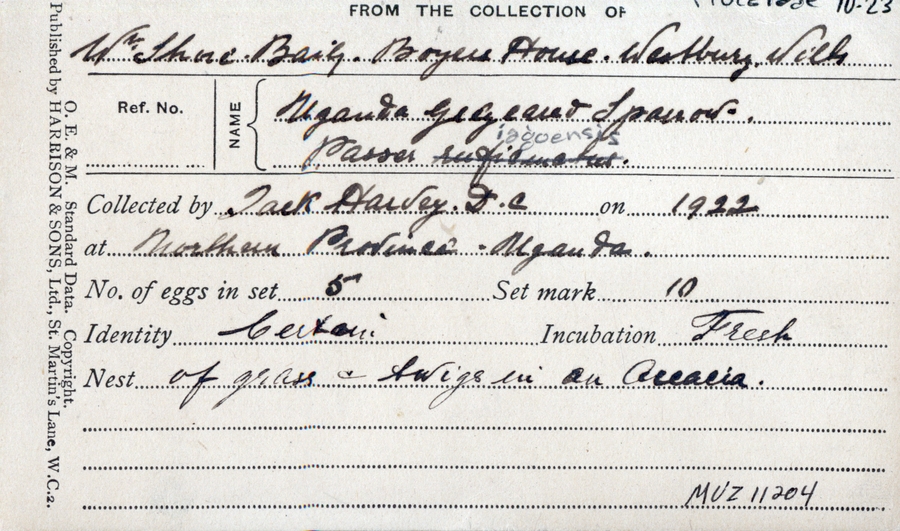 FROM THE COLLECTION OF
10-23
Wm. Shore Baily. Boyers House. Westbury. Wilts
Ref. No.
NAME
Uganda Sparrow.
iagoensis
Passer
Collected by Jack Harvey. D.C on 1922
at Northern Province - Uganda.
No. of eggs in set 5 Set mark 10
Identity Certain Incubation Fresh
Nest of grass & twigs in an Accacia.
MVZ 11204
O. E. & M. Standard Data. Copyright,
Published by HARRISON & SONS, Ltd., St. Martin's Lane, W.C.2.